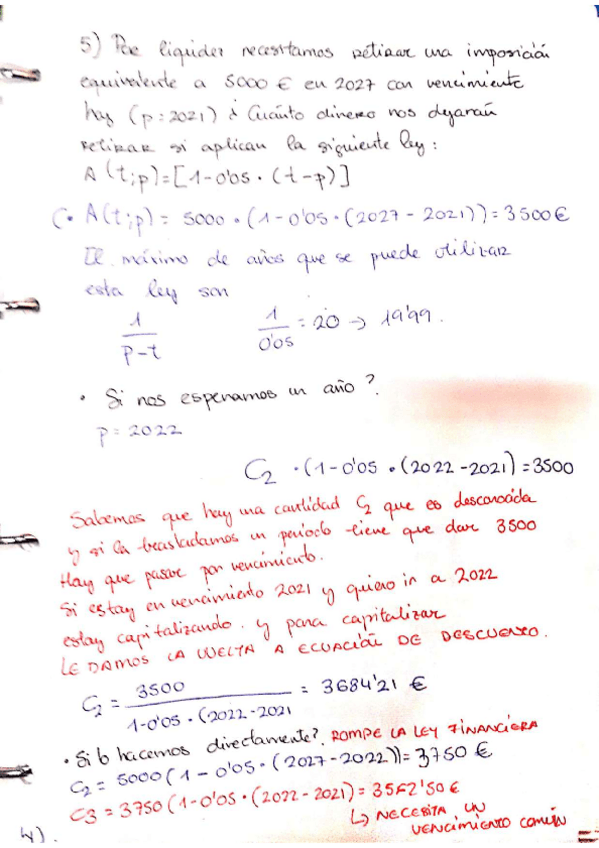 5) Por liquidez necesitamos retirar una imposición
equivalente a 5000 € en 2027 con vencimiento
hoy (p=2021) ¿Cuánto dinero nos dejarán
retirar si aplican la siguiente ley:
A(t;p)=[1-0'05·(t-p)]
C· A(t;p) = 5000·(1-0'05·(2027-2021))=3500€
El máximo de años que se puede utilizar
esta ley son
1/(p-t) 1/0'05 = 20 → 19'99.
· Si nos esperamos un año?.
p=2022
C2 ·(1-0'05·(2022-2021)=3500
Sabemos que hay una cantidad C2 que es desconocida
y si la trasladamos un período tiene que dar 3500
Hay que pasar por vencimiento.
Si estoy en vencimiento 2021 y quiero ir a 2022
estoy capitalizando. y para capitalizar
LE DAMOS LA VUELTA A ECUACIÓN DE DESCUENTO.
C2 = 3500/(1-0'05·(2022-2021 = 3684'21 €
· Si lo hacemos directamente?. ROMPE LA LEY FINANCIERA
C2 = 5000(1-0'05·(2027-2022))=3750 €
C3 = 3750(1-0'05·(2022-2021)=3562'50 €
↳ NECESITA UN
VENCIMIENTO COMÚN